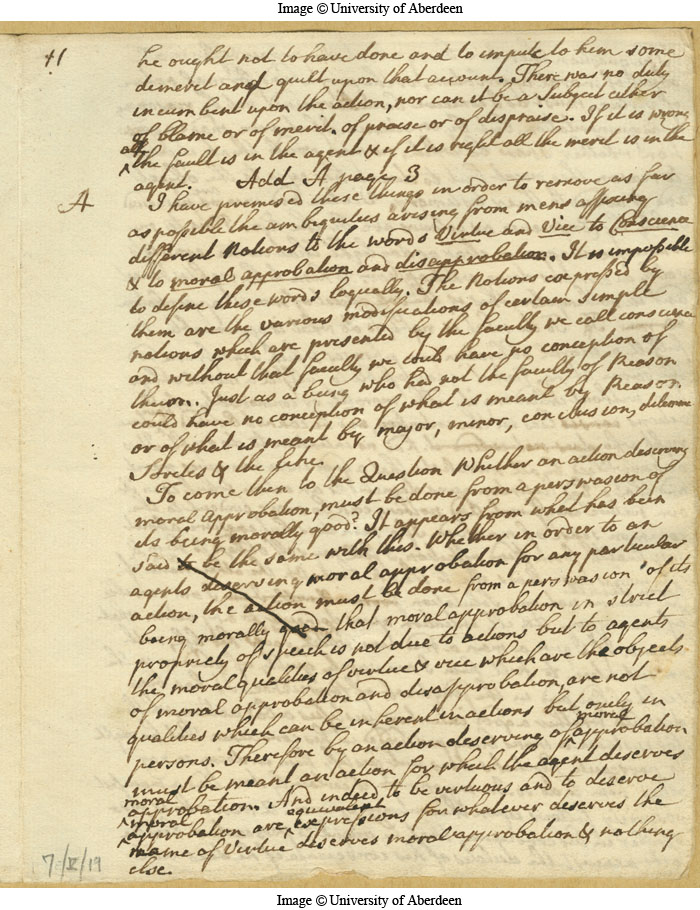 Image © University of Aberdeen
41
he ought not to have done and to impute to him some
demerit and guilt upon that account. There was no duty
incumbent upon the action, nor can it be a Subject either
of blame or of merit. of praise or of dispraise. If it is wrong
all
^ the fault is in the agent & if it is right all the merit is in the
agent. Add A page 3
A
I have premised these things in order to remove as far
as possible the ambiguities arising from mens affixing
different Notions to the words Virtue and Vice to Conscience
& to moral approbation and disapprobation. It is impossible
to define these words logically. The Notions expressed by
them are the various modifications of certain simple
notions which are presented by the faculty we call conscience
and without that faculty we could have no conception of
them. Just as a being who had not the faculty of Reason
could have no conception of what is meant by Reason.
or of what is meant by major, minor, conclusion, dilemma
Sorites & the like.
To come then to the Question Whether an action deserving
moral Approbation, must be done from a perswasion of
its being morally good? It appears from what has been
said to be the same with this. Whether in order to an
agents deserving moral approbation for any particular
action, the action must be done from a perswasion of its
being morally good that moral approbation in strict
propriety of speech is not due to actions but to agents
the moral qualities of virtue & vice which are the objects
of moral approbation and disapprobation, are not
qualities which can be inherent in actions but onely in
persons. Therefore by an action deserving of ^ approbation
moral
must be meant an action for which the agent deserves
moral
^ approbation. And indeed to be virtuous and to deserve
moral equivalent
^ approbation are ^ expressions for whatever deserves the
name of Virtue deserves moral approbation & nothing
else.
7/V/19
Image © University of Aberdeen